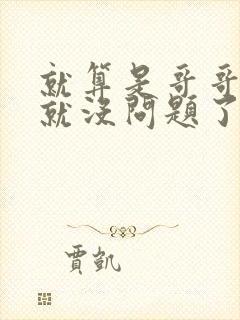 就算是哥哥
就沒問題了
賈凱